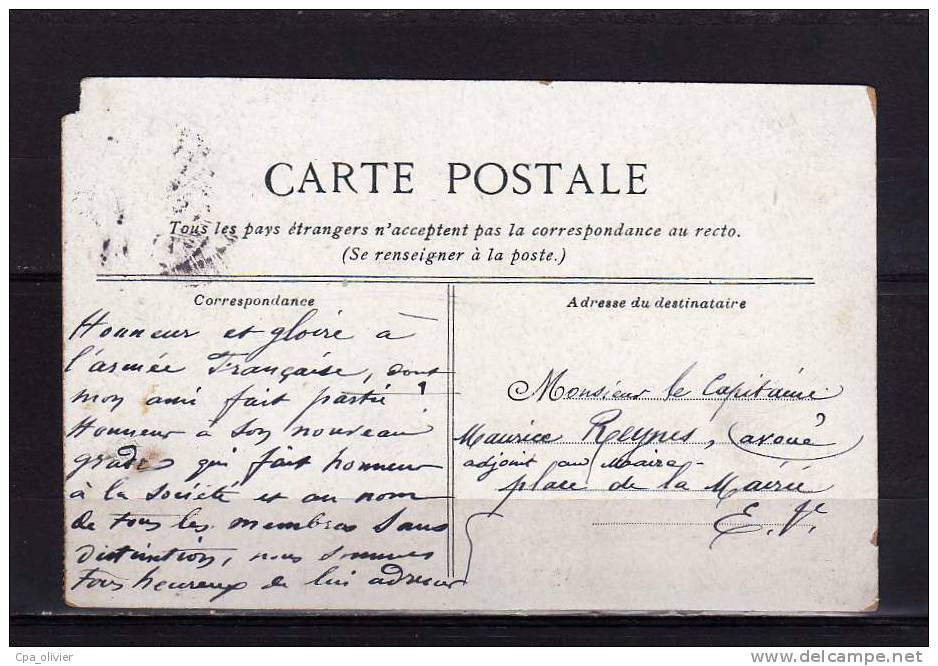 CARTE POSTALE
Tous les pays étrangers n'acceptent pas la correspondance au recto.
(Se renseigner à la poste.)
Correspondance
Honneur et gloire à
l'armée Française, dont
mon ami fait partie
Honneur à son nouveau
grade qui fait honneur
à la société et au nom
de tous les membres sans
distinction, nous sommes
tous heureux de lui adresser
1
Adresse du destinataire
Monsieur le Capitaine
Maurice Reynès, (avoué)
adjoint au Maire -
place de la Mairie
E. V.
Cpa_olivier
delcampe.net